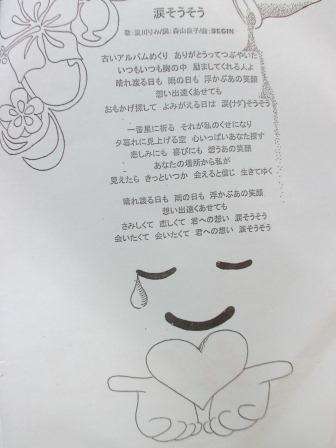 涙そうそう
歌:夏川りみ/詞:森山良子/曲:BEGIN
古いアルバムめくり ありがとうってつぶやいた
いつもいつも胸の中 励ましてくれる人よ
晴れ渡る日も 雨の日も 浮かぶあの笑顔
想い出遠くあせても
おもかげ探して よみがえる日は 涙(ナダ)そうそう
一番星に祈る それが私のくせになり
夕暮れに見上げる空 心いっぱいあなた探す
悲しみにも 喜びにも 想うあの笑顔
あなたの場所から私が
見えたら きっといつか 会えると信じ 生きてゆく
晴れ渡る日も 雨の日も 浮かぶあの笑顔
想い出遠くあせても
さみしくて 恋しくて 君への想い 涙そうそう
会いたくて 会いたくて 君への想い 涙そうそう